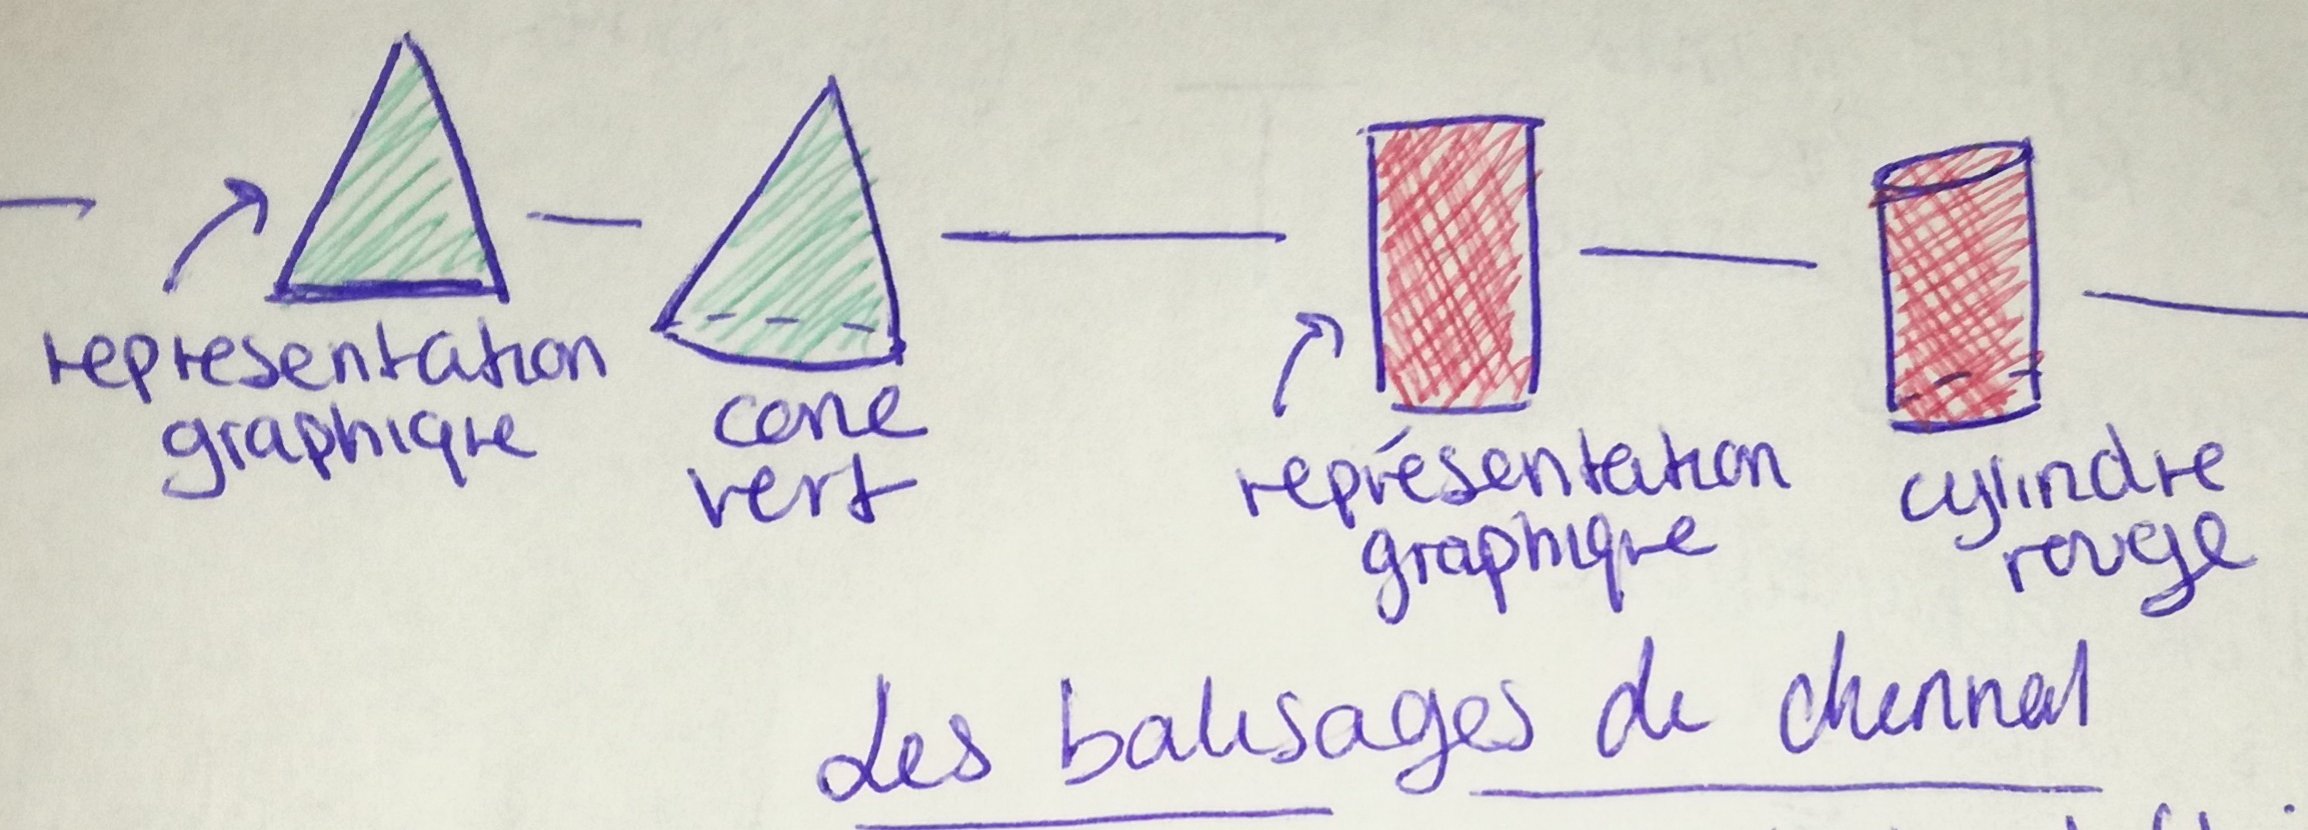 representation
graphique
cone
vert
représentation
graphique
cylindre
rouge
Les balisages de chennal